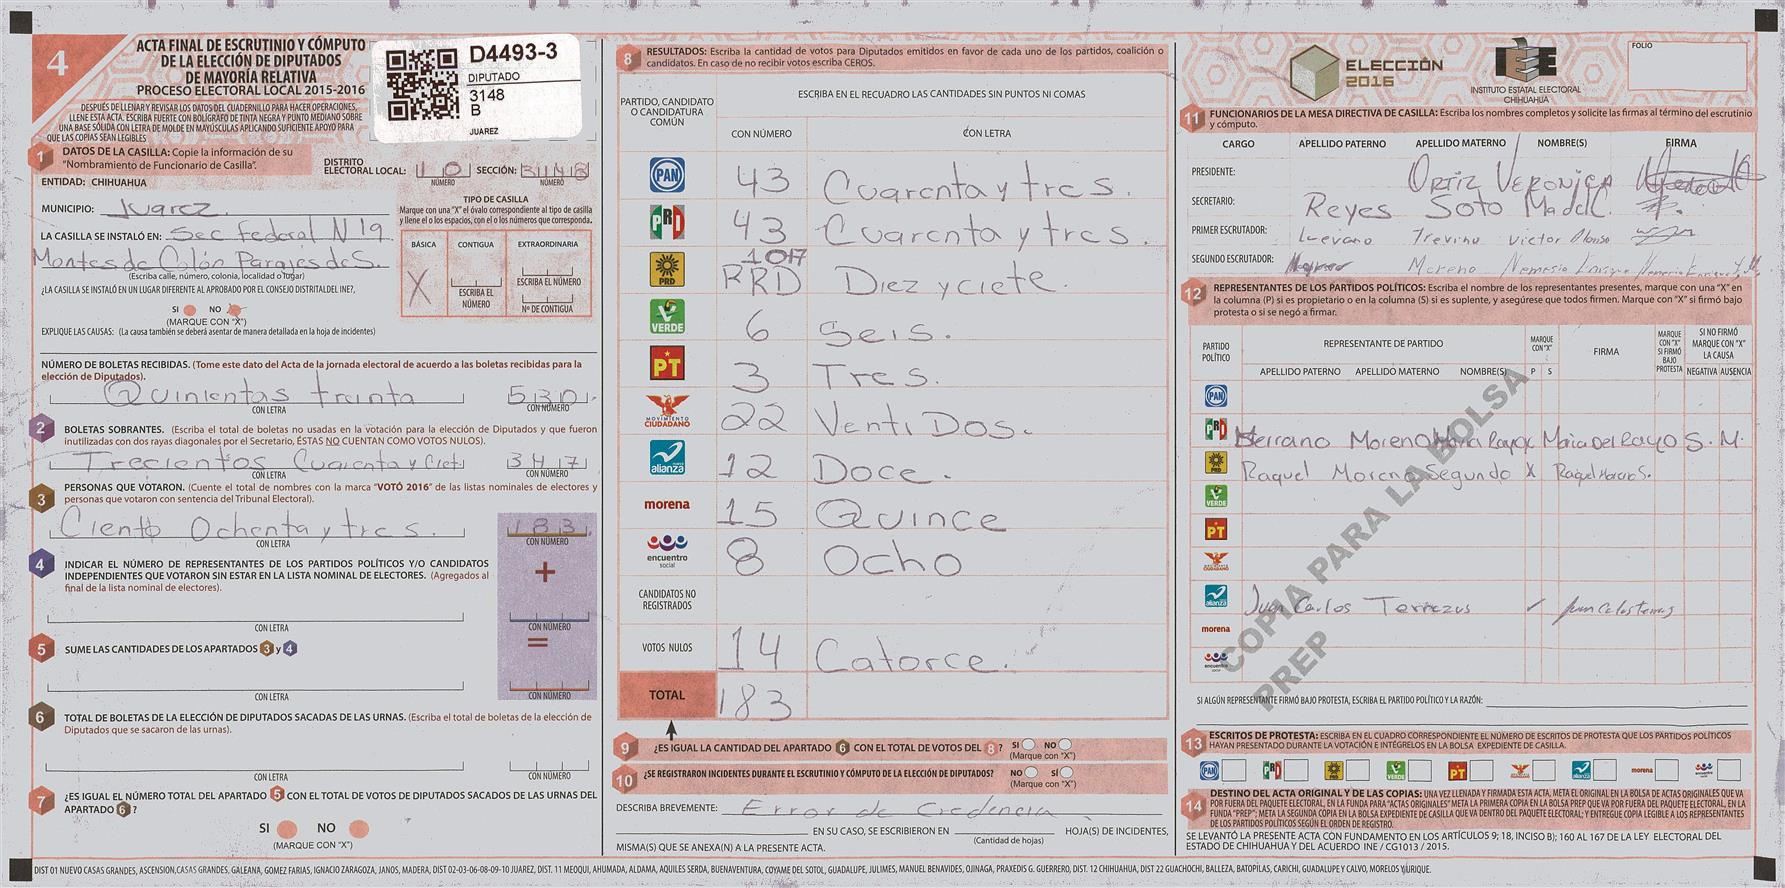 4
ACTA FINAL DE ESCRUTINIO Y CÓMPUTO
DE LA ELECCIÓN DE DIPUTADOS
DE MAYORÍA RELATIVA
PROCESO ELECTORAL LOCAL 2015-2016
DESPUÉS DE LLENAR Y REVISAR LOS DATOS DEL CUADERNILLO PARA HACER OPERACIONES,
LLENE ESTA ACTA. ESCRIBA FUERTE CON BOLÍGRAFO DE TINTA NEGRA Y PUNTO MEDIANO SOBRE
UNA BASE SÓLIDA CON LETRA DE MOLDE EN MAYÚSCULAS APLICANDO SUFICIENTE APOYO PARA
QUE LAS COPIAS SEAN LEGIBLES
D4493-3
DIPUTADO
3148
B
JUAREZ
1 DATOS DE LA CASILLA: Copie la información de su
"Nombramiento de Funcionario de Casilla".
DISTRITO
ELECTORAL LOCAL: 10 SECCIÓN: 3148
NÚMERO NÚMERO
ENTIDAD: CHIHUAHUA
MUNICIPIO: Juarez.
LA CASILLA SE INSTALÓ EN: Sec Federal N 19
Montes de Colón Parajes de S.
(Escriba calle, número, colonia, localidad o lugar)
¿LA CASILLA SE INSTALÓ EN UN LUGAR DIFERENTE AL APROBADO POR EL CONSEJO DISTRITAL DEL INE?,
SI NO
(MARQUE CON "X")
EXPLIQUE LAS CAUSAS: (La causa también se deberá asentar de manera detallada en la hoja de incidentes)
TIPO DE CASILLA
Marque con una "X" el óvalo correspondiente al tipo de casilla
y llene el o los espacios, con el o los números que corresponda.
BÁSICA CONTIGUA EXTRAORDINARIA
X
ESCRIBA EL NÚMERO
ESCRIBA EL NÚMERO
Nº DE CONTIGUA
NÚMERO DE BOLETAS RECIBIDAS. (Tome este dato del Acta de la jornada electoral de acuerdo a las boletas recibidas para la
elección de Diputados).
Quinientas treinta 530
CON LETRA CON NÚMERO
2 BOLETAS SOBRANTES. (Escriba el total de boletas no usadas en la votación para la elección de Diputados y que fueron
inutilizadas con dos rayas diagonales por el Secretario, ÉSTAS NO CUENTAN COMO VOTOS NULOS).
Trecientos Cuarenta y Ciet 347
CON LETRA CON NÚMERO
3 PERSONAS QUE VOTARON. (Cuente el total de nombres con la marca "VOTÓ 2016" de las listas nominales de electores y
personas que votaron con sentencia del Tribunal Electoral).
Ciento Ochenta y tres. 183
CON LETRA CON NÚMERO
+
4 INDICAR EL NÚMERO DE REPRESENTANTES DE LOS PARTIDOS POLÍTICOS Y/O CANDIDATOS
INDEPENDIENTES QUE VOTARON SIN ESTAR EN LA LISTA NOMINAL DE ELECTORES. (Agregados al
final de la lista nominal de electores).
CON LETRA CON NÚMERO
=
5 SUME LAS CANTIDADES DE LOS APARTADOS 3 y 4
CON LETRA CON NÚMERO
6 TOTAL DE BOLETAS DE LA ELECCIÓN DE DIPUTADOS SACADAS DE LAS URNAS. (Escriba el total de boletas de la elección de
Diputados que se sacaron de las urnas).
CON LETRA CON NÚMERO
7 ¿ES IGUAL EL NÚMERO TOTAL DEL APARTADO 5 CON EL TOTAL DE VOTOS DE DIPUTADOS SACADOS DE LAS URNAS DEL
APARTADO 6 ?
SI NO
(MARQUE CON "X")
8 RESULTADOS: Escriba la cantidad de votos para Diputados emitidos en favor de cada uno de los partidos, coalición o
candidatos. En caso de no recibir votos escriba CEROS.
PARTIDO, CANDIDATO
O CANDIDATURA
COMÚN
ESCRIBA EN EL RECUADRO LAS CANTIDADES SIN PUNTOS NI COMAS
CON NÚMERO CON LETRA
PAN 43 Cuarenta y tres.
PRI 43 Cuarenta y tres.
1017
PRD RRD Diez y ciete.
VERDE 6 Seis.
PT 3 Tres.
MOVIMIENTO CIUDADANO 22 Venti Dos.
alianza 12 Doce.
morena 15 Quince
encuentro social 8 Ocho
CANDIDATOS NO
REGISTRADOS
VOTOS NULOS 14 Catorce.
TOTAL 183
9 ¿ES IGUAL LA CANTIDAD DEL APARTADO 6 CON EL TOTAL DE VOTOS DEL 8 ? SI NO
(Marque con "X")
10 ¿SE REGISTRARON INCIDENTES DURANTE EL ESCRUTINIO Y CÓMPUTO DE LA ELECCIÓN DE DIPUTADOS? NO SÍ
(Marque con "X")
DESCRIBA BREVEMENTE: Error de Credencia
EN SU CASO, SE ESCRIBIERON EN HOJA(S) DE INCIDENTES,
(Cantidad de hojas)
MISMA(S) QUE SE ANEXA(N) A LA PRESENTE ACTA.
ELECCIÓN
2016
IEE
INSTITUTO ESTATAL ELECTORAL
CHIHUAHUA
FOLIO
11 FUNCIONARIOS DE LA MESA DIRECTIVA DE CASILLA: Escriba los nombres completos y solicite las firmas al término del escrutinio
y cómputo.
CARGO APELLIDO PATERNO APELLIDO MATERNO NOMBRE(S) FIRMA
PRESIDENTE: Ortiz Veronica
SECRETARIO: Reyes Soto Ma del C.
PRIMER ESCRUTADOR: Luevano Trevino Victor Alonso
SEGUNDO ESCRUTADOR: Moreno Nemesio Enrique
12 REPRESENTANTES DE LOS PARTIDOS POLÍTICOS: Escriba el nombre de los representantes presentes, marque con una "X" en
la columna (P) si es propietario o en la columna (S) si es suplente, y asegúrese que todos firmen. Marque con "X" si firmó bajo
protesta o si se negó a firmar.
PARTIDO
POLÍTICO
REPRESENTANTE DE PARTIDO
MARQUE
CON "X"
FIRMA
MARQUE
CON "X"
SI FIRMÓ
BAJO
PROTESTA
SI NO FIRMÓ
MARQUE CON "X"
LA CAUSA
APELLIDO PATERNO APELLIDO MATERNO NOMBRE(S) P S NEGATIVA AUSENCIA
PAN
PRI Serrano Moreno Maria Rayo X Maria Del Rayo S. M.
PRD Raquel Moreno Segundo X Raquel Moreno S.
VERDE
PT
alianza Juan Carlos Terrazas
morena
encuentro social
COPIA PARA LA BOLSA
PREP
SI ALGÚN REPRESENTANTE FIRMÓ BAJO PROTESTA, ESCRIBA EL PARTIDO POLÍTICO Y LA RAZÓN:
13 ESCRITOS DE PROTESTA: ESCRIBA EN EL CUADRO CORRESPONDIENTE EL NÚMERO DE ESCRITOS DE PROTESTA QUE LOS PARTIDOS POLÍTICOS
HAYAN PRESENTADO DURANTE LA VOTACIÓN E INTÉGRELOS EN LA BOLSA EXPEDIENTE DE CASILLA.
PAN PRI PRD VERDE PT alianza morena
14 DESTINO DEL ACTA ORIGINAL Y DE LAS COPIAS: UNA VEZ LLENADA Y FIRMADA ESTA ACTA, META EL ORIGINAL EN LA BOLSA DE ACTAS ORIGINALES QUE VA
POR FUERA DEL PAQUETE ELECTORAL, EN LA FUNDA PARA "ACTAS ORIGINALES" META LA PRIMERA COPIA EN LA BOLSA PREP QUE VA POR FUERA DEL PAQUETE ELECTORAL, EN LA
FUNDA "PREP"; META LA SEGUNDA COPIA EN LA BOLSA EXPEDIENTE DE CASILLA QUE VA DENTRO DEL PAQUETE ELECTORAL; Y ENTREGUE COPIA LEGIBLE A LOS REPRESENTANTES
DE LOS PARTIDOS POLÍTICOS SEGÚN EL ORDEN DE REGISTRO.
SE LEVANTÓ LA PRESENTE ACTA CON FUNDAMENTO EN LOS ARTÍCULOS 9; 18, INCISO B); 160 AL 167 DE LA LEY ELECTORAL DEL
ESTADO DE CHIHUAHUA Y DEL ACUERDO INE / CG1013 / 2015.
DIST 01 NUEVO CASAS GRANDES, ASCENSION, CASAS GRANDES, GALEANA, GOMEZ FARIAS, IGNACIO ZARAGOZA, JANOS, MADERA, DIST 02-03-06-08-09-10 JUAREZ, DIST. 11 MEOQUI, AHUMADA, ALDAMA, AQUILES SERDA, BUENAVENTURA, COYAME DEL SOTOL, GUADALUPE, JULIMES, MANUEL BENAVIDES, OJINAGA, PRAXEDIS G. GUERRERO, DIST. 12 CHIHUAHUA, DIST 22 GUACHOCHI, BALLEZA, BATOPILAS, CARICHI, GUADALUPE Y CALVO, MORELOS Y URIQUE.